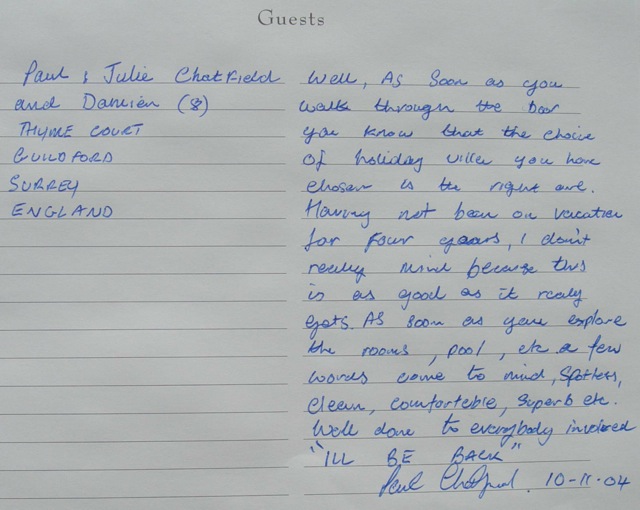 Guests
Paul & Julie Chatfield
and Damien (8)
THYME COURT
GUILDFORD
SURREY
ENGLAND
Well, As Soon as you
walk through the door
you know that the choice
of holiday villa you have
chosen is the right one.
Having not been on vacation
for four years, I don't
really mind because this
is as good as it realy
gets. As soon as you explore
the rooms, pool, etc a few
words come to mind, Spotless,
Clean, comfortable, Superb etc.
Well done to everybody involved
"ILL BE BACK"
Paul Chatfield 10-11-04